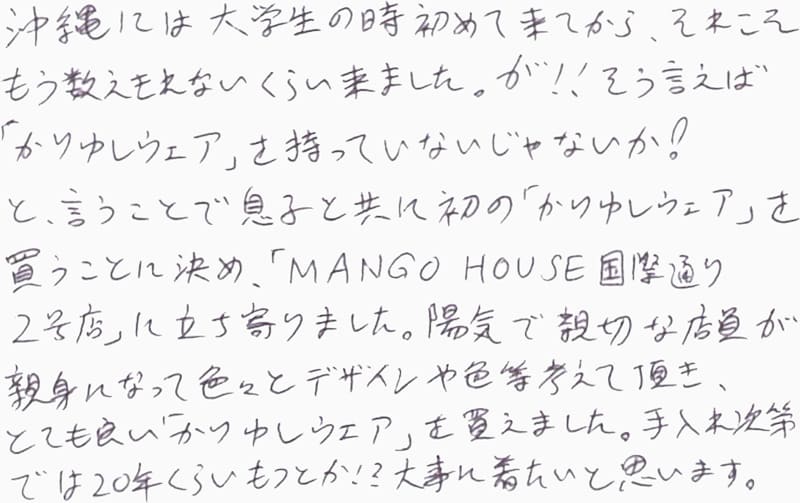 沖縄には大学生の時初めて来てから、それこそ
もう数えきれないくらい来ました。が!!そう言えば
「かりゆしウェア」を持っていないじゃないか!
と、言うことで息子と共に初の「かりゆしウェア」を
買うことに決め、「MANGO HOUSE 国際通り
2号店」に立ち寄りました。陽気で親切な店員が
親身になって色々とデザインや色等考えて頂き、
とても良い「かりゆしウェア」を買えました。手入れ次第
では20年くらいもつとか!?大事に着たいと思います。